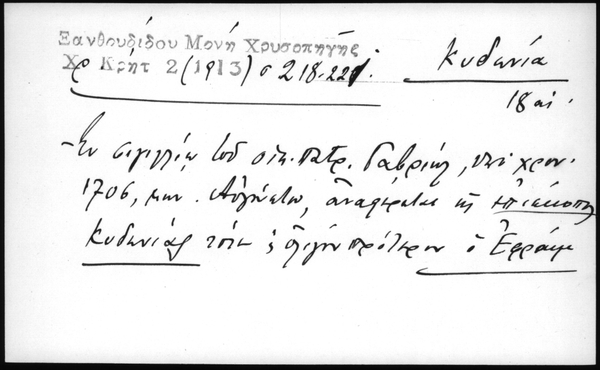 Ξανθουδίδου Μονή Χρυσοπηγῆς
Χρ Κρήτ 2 (1913) σ 218-221.
Κυδωνία
18 αι.
Ἐν σιγιλλίῳ τοῦ οἰκ. πατρ. Γαβριήλ, ὑπὸ χρον.
1706, μην. Αὐγούστῳ, ἀναφέρεται ὡς ἐπίσκοπος
Κυδωνίας τότε ἢ ὀλίγον πρότερον ὁ Ἐφραίμ